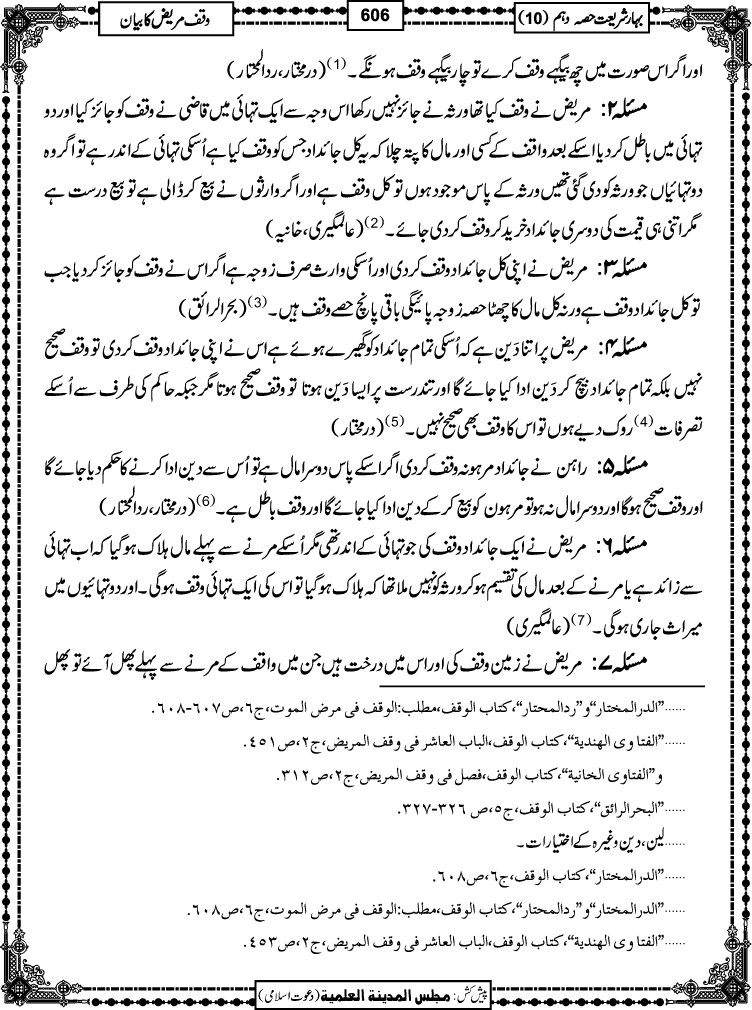 بہار شریعت حصہ دہم (10)
606
وقف مریض کا بیان
اور اگر اس صورت میں چھ بیگہے وقف کرے تو چار بیگہے وقف ہونگے۔(1) (درمختار، ردالمحتار)
مسئلہ ۲: مریض نے وقف کیا تھا ورثہ نے جائز نہیں رکھا اس وجہ سے ایک تہائی میں قاضی نے وقف کو جائز کیا اور دو
تہائی میں باطل کردیا اسکے بعد واقف کے کسی اور مال کا پتہ چلا کہ یہ کل جائداد جس کو وقف کیا ہے اُسکی تہائی کے اندر ہے تو اگر وہ
دو تہائیاں جو ورثہ کو دی گئی تھیں ورثہ کے پاس موجود ہوں تو کل وقف ہے اور اگر وارثوں نے بیع کر ڈالی ہے تو بیع درست ہے
مگر اتنی ہی قیمت کی دوسری جائداد خرید کر وقف کردی جائے۔(2) (عالمگیری، خانیہ)
مسئلہ ۳: مریض نے اپنی کل جائداد وقف کردی اور اُسکی وارث صرف زوجہ ہے اگر اس نے وقف کو جائز کردیا جب
تو کل جائداد وقف ہے ورنہ کل مال کا چھٹا حصہ زوجہ پائیگی باقی پانچ حصے وقف ہیں۔(3) (بحرالرائق)
مسئلہ ۴: مریض پر اتنا دَین ہے کہ اُسکی تمام جائداد کو گھیرے ہوئے ہے اس نے اپنی جائداد وقف کردی تو وقف صحیح
نہیں بلکہ تمام جائداد بیچ کر دَین ادا کیا جائے گا اور تندرست پر ایسا دَین ہوتا تو وقف صحیح ہوتا مگر جبکہ حاکم کی طرف سے اُسکے
تصرفات (4) روک دیے ہوں تو اس کا وقف بھی صحیح نہیں۔(5) (درمختار)
مسئلہ ۵: راہن نے جائداد مرہونہ وقف کردی اگر اسکے پاس دوسرا مال ہے تو اُس سے دین ادا کرنے کا حکم دیا جائے گا
اور وقف صحیح ہوگا اور دوسرا مال نہ ہو تو مرہون کو بیع کرکے دین ادا کیا جائے گا اور وقف باطل ہے۔(6) (درمختار، ردالمحتار)
مسئلہ ۶: مریض نے ایک جائداد وقف کی جو تہائی کے اندر تھی مگر اُسکے مرنے سے پہلے مال ہلاک ہوگیا کہ اب تہائی
سے زائد ہے یا مرنے کے بعد مال کی تقسیم ہوکر ورثہ کو نہیں ملا تھا کہ ہلاک ہوگیا تو اس کی ایک تہائی وقف ہوگی۔ اور دو تہائیوں میں
میراث جاری ہوگی۔(7) (عالمگیری)
مسئلہ ۷: مریض نے زمین وقف کی اور اس میں درخت ہیں جن میں واقف کے مرنے سے پہلے پھل آئے تو پھل
......”الدرالمختار“و”ردالمحتار“، کتاب الوقف، مطلب: الوقف فی مرض الموت، ج٦، ص٦٠٧-٦٠٨.
......”الفتا وی الهندیة“، کتاب الوقف، الباب العاشر فی وقف المریض، ج٢، ص٤٥١.
و”الفتاوی الخانیة“، کتاب الوقف، فصل فی وقف المریض، ج٢، ص٣١٢.
......”البحرالرائق“، کتاب الوقف، ج٥، ص ٣٢٦-٣٢٧.
......لین، دین وغیرہ کے اختیارات۔
......”الدرالمختار“، کتاب الوقف، ج٦، ص٦٠٨.
......”الدرالمختار“و”ردالمحتار“، کتاب الوقف، مطلب: الوقف فی مرض الموت، ج٦، ص٦٠٨.
......”الفتا وی الهندیة“، کتاب الوقف، الباب العاشر فی وقف المریض، ج٢، ص٤٥٣.
پیش کش: مجلس المدینة العلمیة (دعوت اسلامی)